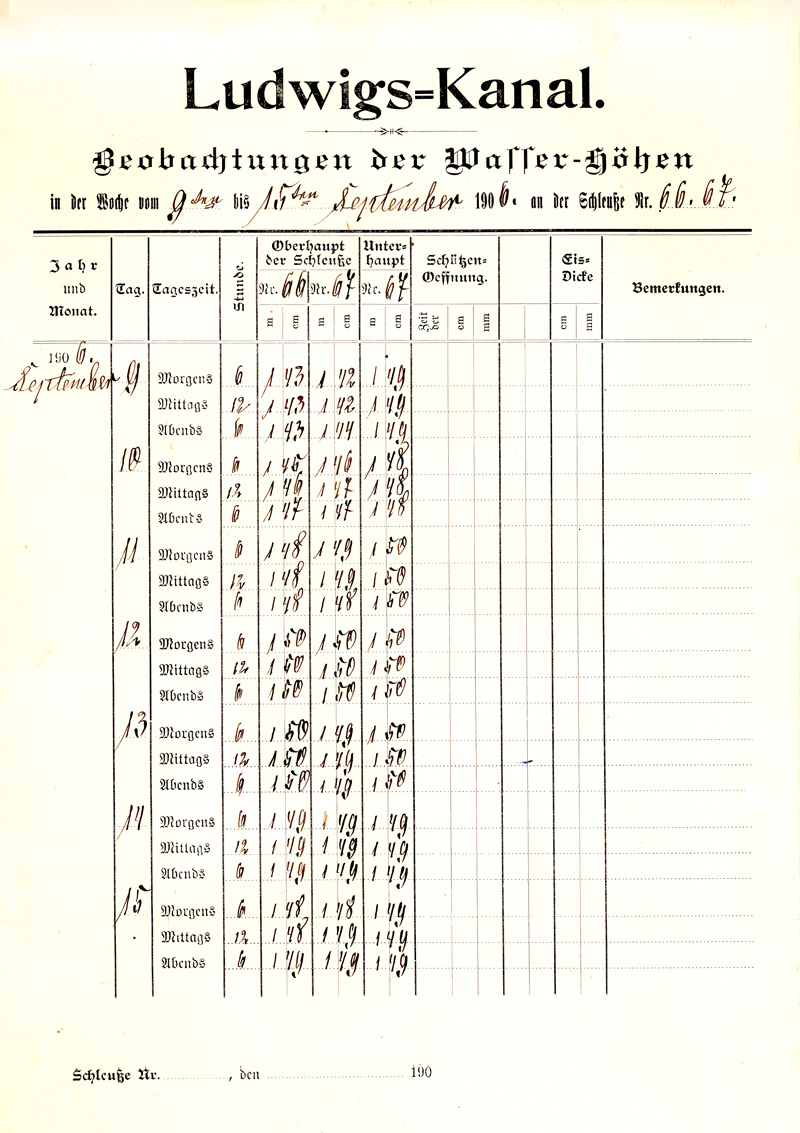 Ludwigs=Kanal.
Beobachtungen der Wasser-Höhen
in der Woche vom 9ten bis 15ten September 1906. an der Schleuße Nr. 66. 67.
Jahr und Monat. Tag. Tageszeit. Stunde. Oberhaupt der Schleuße Unter-haupt Schützen-Oeffnung. Eis-Dicke Bemerkungen.
Nr. 66 Nr. 67 Nr. 67
m cm m cm m cm Zeit der cm mm cm mm
1906.
September 9 Morgens 6 1 43 1 42 1 49
Mittags 12 1 43 1 42 1 49
Abends 6 1 43 1 44 1 49
10 Morgens 6 1 45 1 46 1 48
Mittags 12 1 46 1 47 1 48
Abends 6 1 47 1 47 1 48
11 Morgens 6 1 48 1 49 1 50
Mittags 12 1 48 1 49 1 50
Abends 6 1 48 1 48 1 50
12 Morgens 6 1 50 1 50 1 50
Mittags 12 1 50 1 50 1 50
Abends 6 1 50 1 50 1 50
13 Morgens 6 1 50 1 49 1 50
Mittags 12 1 50 1 49 1 50
Abends 6 1 50 1 49 1 50
14 Morgens 6 1 49 1 49 1 49
Mittags 12 1 49 1 49 1 49
Abends 6 1 49 1 49 1 49
15 Morgens 6 1 48 1 48 1 49
Mittags 12 1 48 1 49 1 49
Abends 6 1 49 1 49 1 49
Schleuße Nr. , den 190